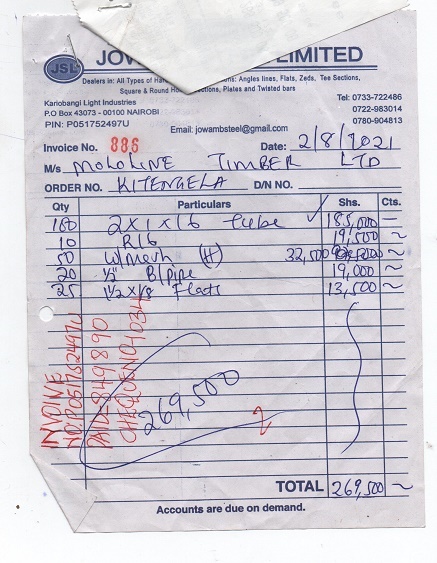 JSL JOW LIMITED
Dealers in: All Types of Har ons: Angles lines, Flats, Zeds, Tee Sections,
Square & Round Ho ctions, Plates and Twisted bars
Kariobangi Light Industries
P.O Box 43073 - 00100 NAIROBI
PIN: P051752497U
Tel: 0733-722486
0722-983014
0780-904813
Email: jowambsteel@gmail.com
Invoice No. 886 Date: 2/8/2021
M/s MOLOLINE TIMBER LTD
ORDER NO. KITENGELA D/N NO.
Qty Particulars Shs. Cts.
100 2x1x16 tube ✓ 185,000 —
10 R16 19,500 ~
50 W/Mesh (H) 32,500 ~
20 1½" B/pipe 19,000 ~
25 1½x1/8 Flats 13,500 ~
269,500
INVOINE
NO:P051752497U
PAID-849890
CHEQUEN04034
2
TOTAL 269,500 ~
Accounts are due on demand.